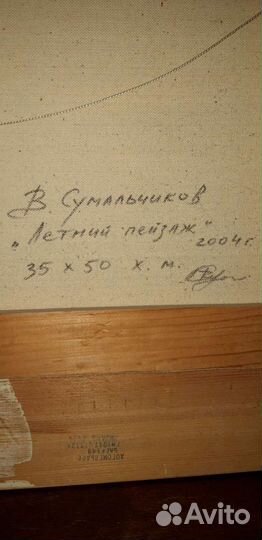 В. Сумальчиков
„Летний пейзаж"
2004 г.
35 х 50 х. м.
Avito